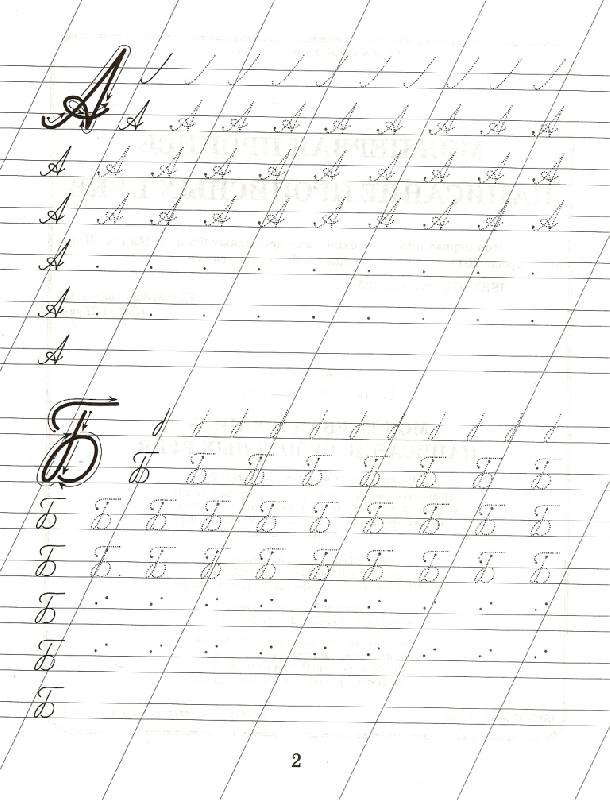 А А А А А А А А А А
А А А А А А А А А А
А А А А А А А А А А
А
А
А
Б Б Б Б Б Б Б Б Б
Б Б Б Б Б Б Б Б Б Б
Б Б Б Б Б Б Б Б Б Б
Б
Б
Б
2